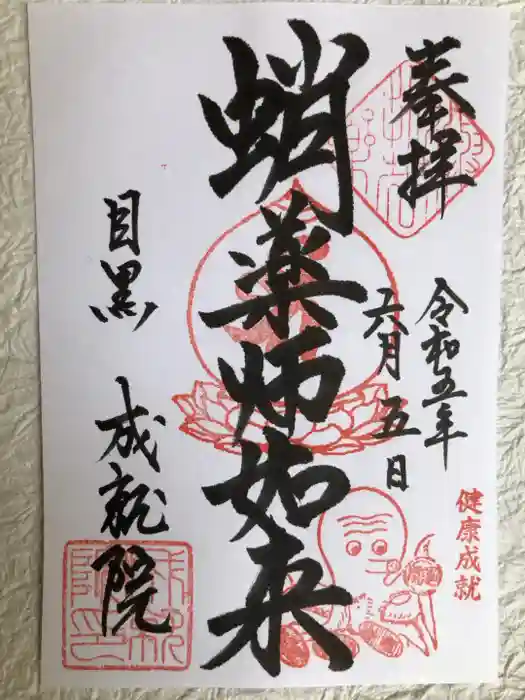 奉拝
令和五年
六月五日
蛸薬師如来
目黒 成就院
健康成就